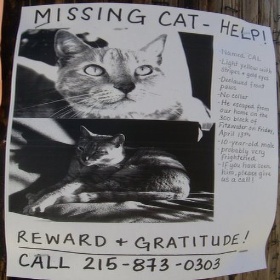 MISSING CAT - HELP!
Name: CAL
-Light yellow with
stripes & gold eyes
-Declawed front
paws
-No collar
-He escaped from
our home on the
800 block of
Fitzwater on Friday,
April 13th
-10-year-old male
probably very
frightened
-If you have seen
him, please give
us a call!
REWARD + GRATITUDE!
CALL 215-873-0303